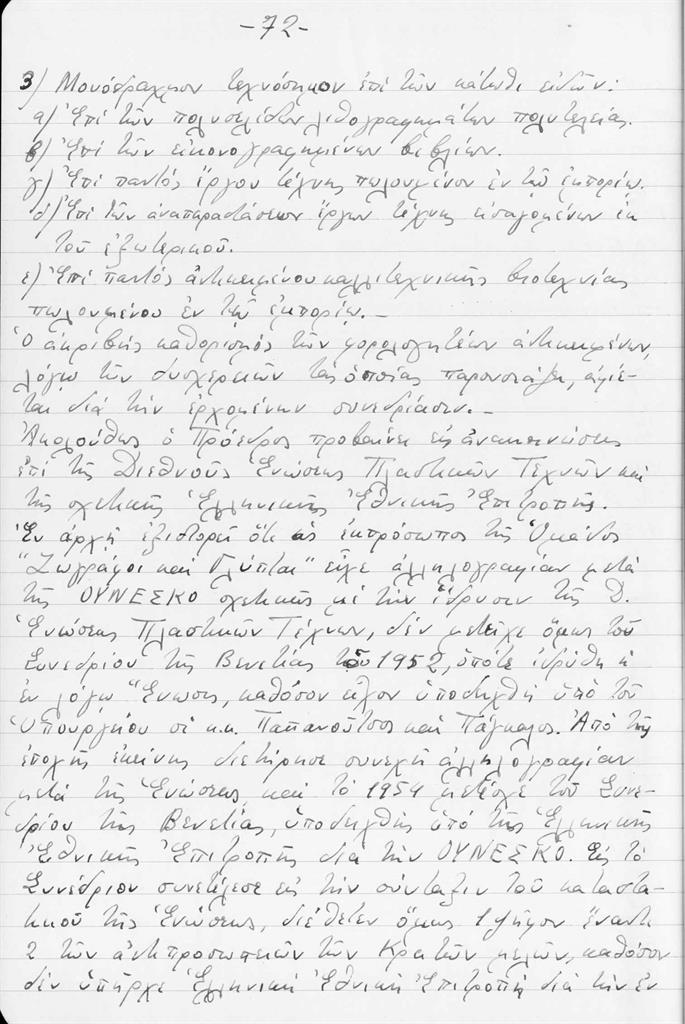 -72-
3) Μονόδραχμον τεχνόσημον ἐπί τῶν κάτωθι εἰδῶν:
α) Ἐπί τῶν πολυσελίδων λιθογραφημάτων πολυτελείας.
β) Ἐπί τῶν εἰκονογραφημένων βιβλίων.
γ) Ἐπί παντός ἔργου τέχνης πωλουμένου ἐν τῷ ἐμπορίῳ.
δ) Ἐπί τῶν ἀναπαραστάσεων ἔργων τέχνης εἰσαγομένων ἐκ
τοῦ ἐξωτερικοῦ.
ε) Ἐπί παντός ἀντικειμένου καλλιτεχνικῆς βιοτεχνίας
πωλουμένου ἐν τῷ ἐμπορίῳ.-
Ὁ ἀκριβής καθορισμός τῶν φορολογητέων ἀντικειμένων,
λόγῳ τῶν δυσχερειῶν τάς ὁποίας παρουσιάζει, ἀφίε-
ται διά τήν ἐρχομένων συνεδρίασιν.-
Ἀκολούθως ὁ Πρόεδρος προβαίνει εἰς ἀνακοινώσεις
ἐπί τῆς Διεθνοῦς Ἑνώσεως Πλαστικῶν Τεχνῶν καί
τῆς σχετικῆς Ἑλληνικῆς Ἐθνικῆς Ἐπιτροπῆς.
Ἐν ἀρχῇ ἐξιστορεῖ ὅτι ὡς ἐκπρόσωπος τῆς Ὁμάδος
"Ζωγράφοι καί Γλύπται" εἶχε ἀλληλογραφίαν μετά
τῆς ΟΥΝΕΣΚΟ σχετικῶς μέ τήν ἵδρυσιν τῆς Δ.
Ἑνώσεως Πλαστικῶν Τέχνων, δέν μετεῖχε ὅμως τοῦ
Συνεδρίου τῆς Βενετίας τοῦ 1952, ὁπότε ἱδρύθη ἡ
ἐν λόγῳ Ἕνωσις, καθόσον εἶχον ὑποδειχθῆ ὑπό τοῦ
Ὑπουργείου οἱ κ.κ. Παπανοῦτσος καί Πάγκαλος. Ἀπό τῆς
ἐποχῆς ἐκείνης διετήρησε συνεχῆ ἀλληλογραφίαν
μετά τῆς Ἑνώσεως καί τό 1954 μετέσχε τοῦ Συνε-
δρίου τῆς Βενετίας, ὑποδειχθείς ὑπό τῆς Ἑλληνικῆς
Ἐθνικῆς Ἐπιτροπῆς διά τήν ΟΥΝΕΣΚΟ. Εἰς τό
Συνέδριον συνετέλεσε εἰς τήν σύνταξιν τοῦ καταστα-
τικοῦ τῆς Ἑνώσεως, διέθετεν ὅμως 1 ψῆφον ἔναντι
2 τῶν ἀντιπροσωπειῶν τῶν Κρατῶν μελῶν, καθόσον
δέν ὑπῆρχε Ἑλληνική Ἐθνική Ἐπιτροπή διά τήν ἐν